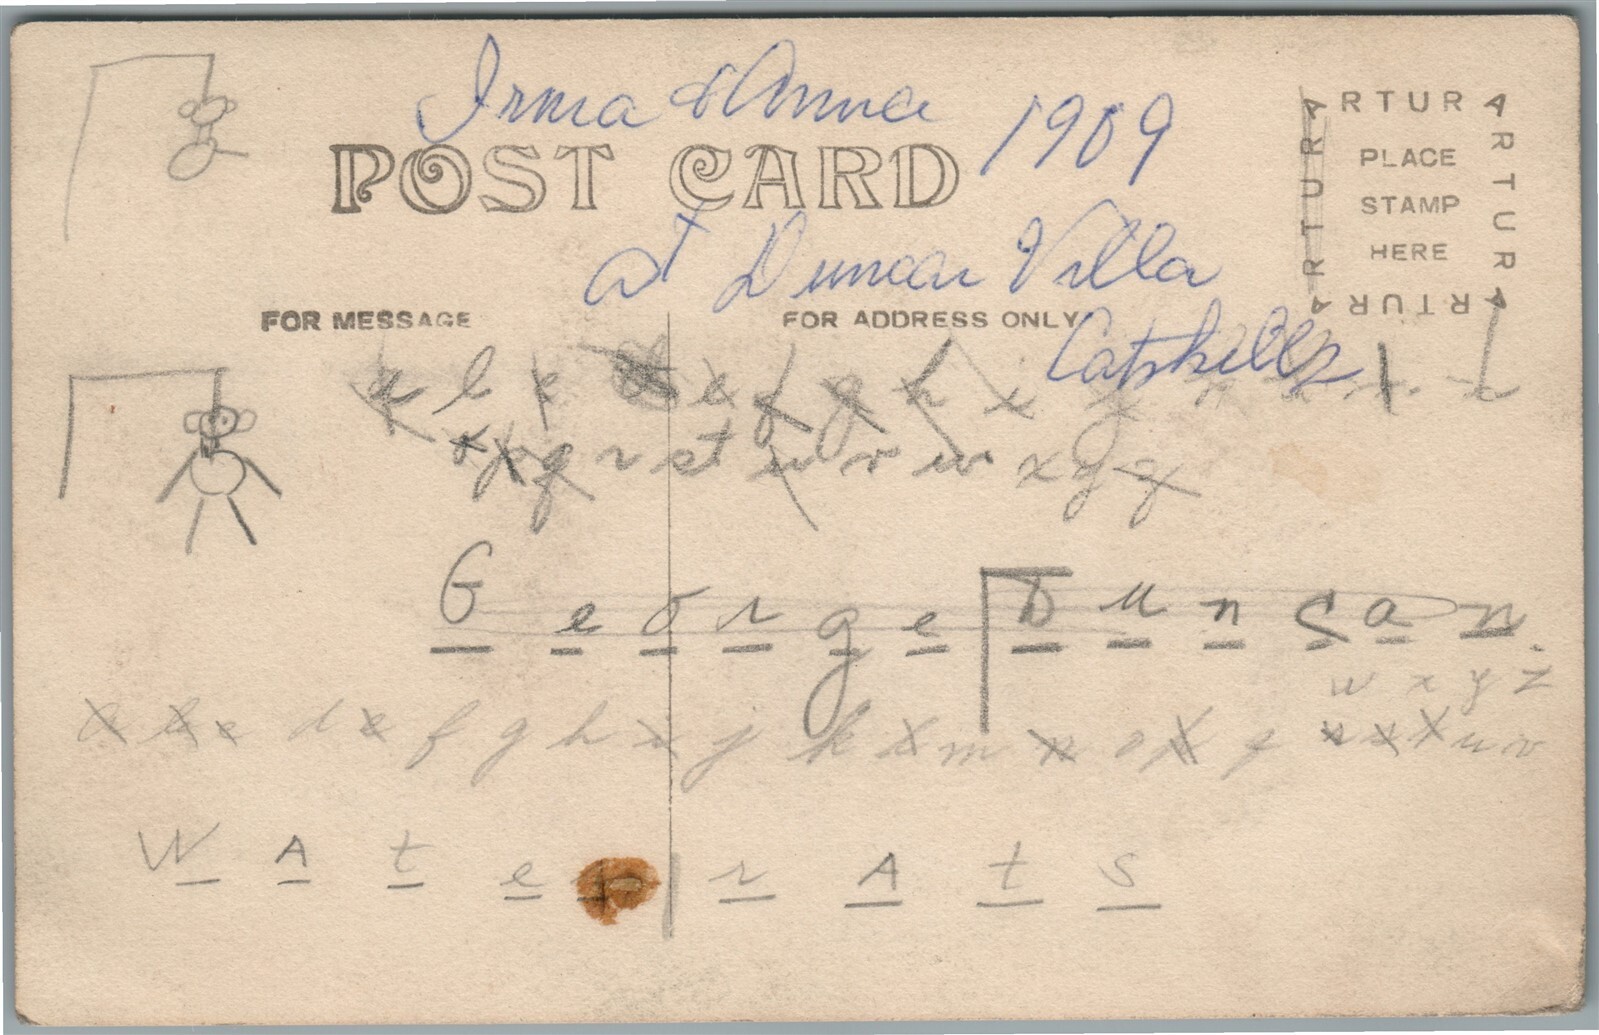 Irma & Anna 1909
POST CARD
at Duncan Villa
Catskills
ARTURA
PLACE
STAMP
HERE
ARTURA
ARTURA
ARTURA
FOR MESSAGE
FOR ADDRESS ONLY
a b c d e f g h i
o p q r s t u v w x y z
George Dunsan
w x y z
a b c d e f g h i j k l m n o p q r s t u v
W A t e r r A t s